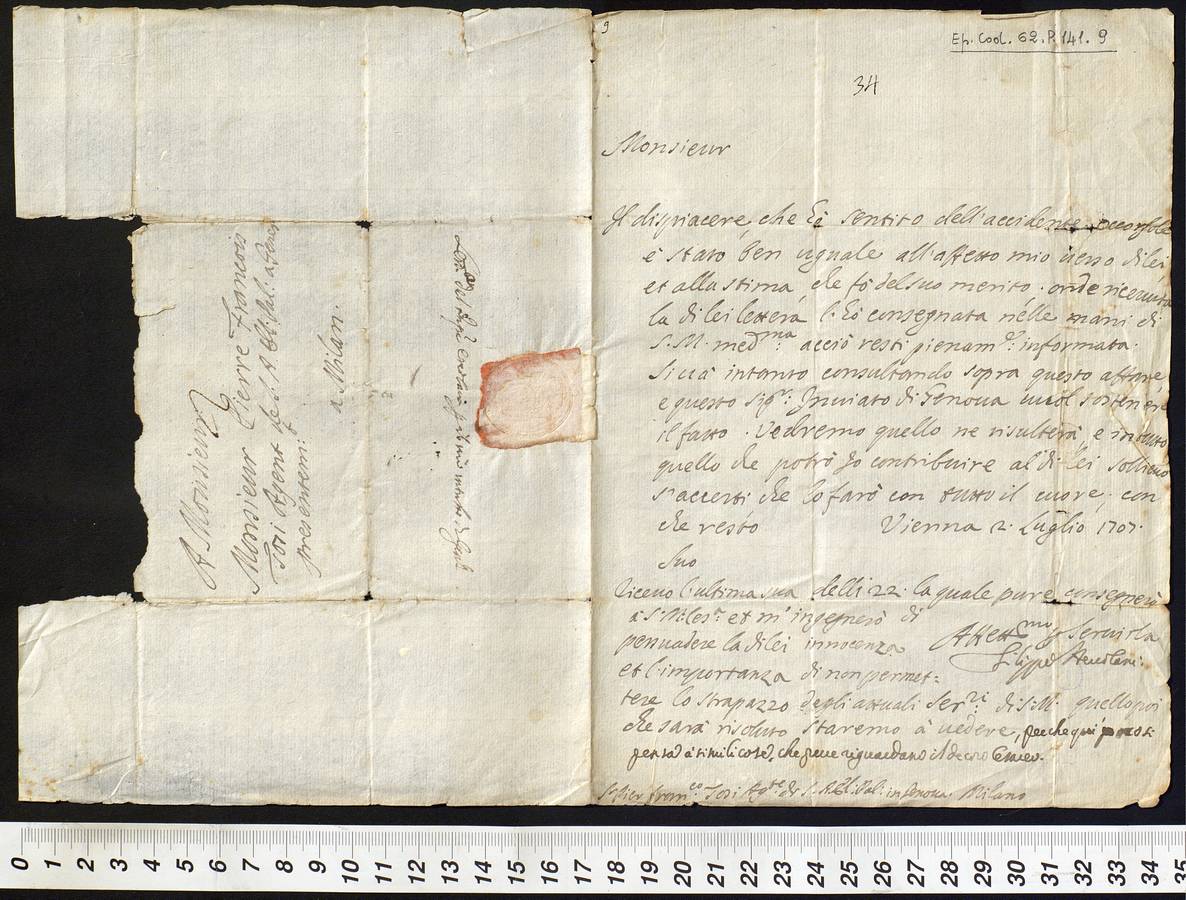 9
Ep. Cod. 62. P. 141. 9
34
Monsieur
Il dispiacere, che hò sentito dell'accidente
è stato ben uguale all'affetto mio verso di lei
et alla stima che fò del suo merito. onde ricevuta
la di lei lettera l'hò consegnata nelle mani di
S. M. med.ma acciò resti pienam.te informata.
Si và intanto consultando sopra questo affare
e questo Sig.r Inviato di Genova vuol sostenere
il fatto. Vedremo quello ne risulterà, e in tutto
quello che potrò Io contribuire al di lei sollievo
s'accerti che lo farò con tutto il cuore, con
che resto Vienna 2. Luglio 1707.
Suo
Ricevo l'ultima sua delli 22. la quale pure consegnerò
à S. M. Ces.a et m'ingegnerò di
persuadere la di lei innocenza
et l'importanza di non permet=
tere lo strapazzo degli attuali Ser.ri di S. M. quello poi
che sarà risoluto staremo à vedere, perche qui poco si
pensa à simili cose, che pure riguardano il decoro Cesareo.
Aff.mo Servirla
Filippo
S. Pier Fran.co Tosi Ag.te di S. in Genova. Milano
A Monsieur
Monsieur Pierre Francois
Tosi Agent de S. à Genes
presentem.t
à Milan.